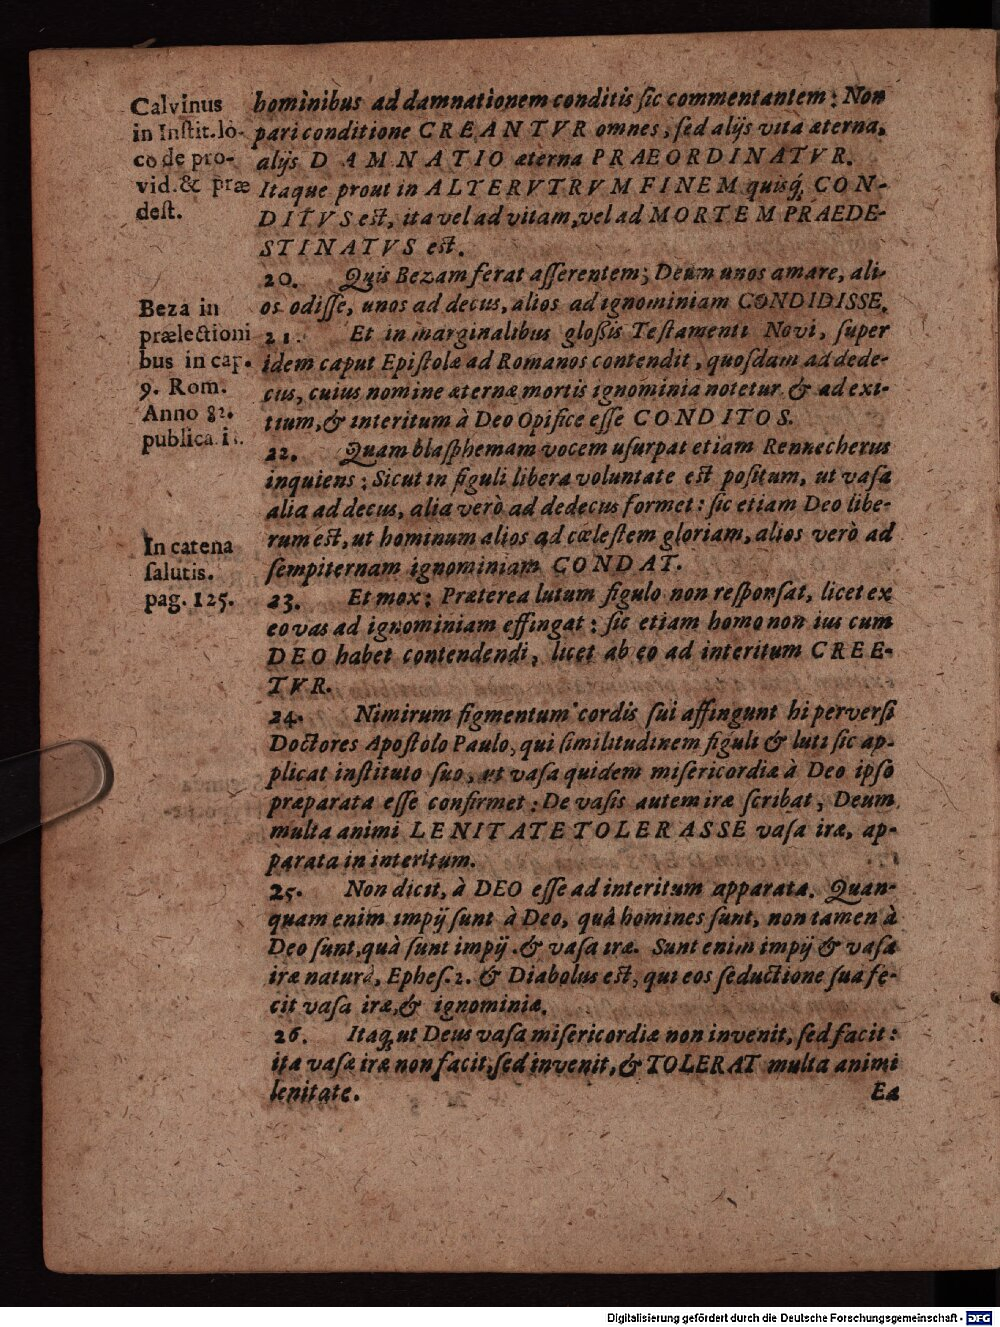 Calvinus
in Instit. lo-
co de pro-
vid. & præ
dest.
hominibus ad damnationem conditis sic commentantem: Non
pari conditione CREANTVR omnes, sed alijs vita æterna,
alijs DAMNATIO æterna PRAEORDINATVR.
Itaque prout in ALTERVTRVM FINEM quisq́; CON-
DITVS est, ita vel ad vitam, vel ad MORTEM PRAEDE-
STINATVS est.
20. Quis Bezam ferat asserentem; Deum unos amare, ali-
os odisse, unos ad decus, alios ad ignominiam CONDIDISSE.
Beza in
prælectioni
bus in cap.
9. Rom.
Anno 82.
publicatis.
21. Et in marginalibus glossis Testamenti Novi, super
idem caput Epistolæ ad Romanos contendit, quosdam ad dede-
cus, cuius nomine æternæ mortis ignominia notetur & ad exi-
tium, & interitum à Deo Opifice esse CONDITOS.
22. Quam blasphemam vocem usurpat etiam Rennecherus
inquiens: Sicut in figuli libera voluntate est positum, ut vasa
alia ad decus, alia verò ad dedecus formet: sic etiam Deo libe-
rum est, ut hominum alios ad cœlestem gloriam, alios verò ad
sempiternam ignominiam CONDAT.
In catena
salutis.
pag. 125.
23. Et mox: Præterea lutum figulo non responsat, licet ex
eo vas ad ignominiam effingat: sic etiam homo non ius cum
DEO habet contendendi, licet ab eo ad interitum CREE-
TVR.
24. Nimirum figmentum cordis sui affingunt hi perversi
Doctores Apostolo Paulo, qui similitudinem figuli & luti sic ap-
plicat instituto suo, ut vasa quidem misericordiæ à Deo ipso
præparata esse confirmet: De vasis autem iræ scribat, Deum
multa animi LENITATE TOLERASSE vasa iræ, ap-
parata in interitum.
25. Non dicit, à DEO esse ad interitum apparata. Quan-
quam enim impij sunt à Deo, quà homines sunt, non tamen à
Deo sunt, quà sunt impij & vasa iræ. Sunt enim impij & vasa
iræ naturâ, Ephes. 2. & Diabolus est, qui eos seductione sua fe-
cit vasa iræ, & ignominiæ.
26. Itaq; ut Deus vasa misericordiæ non invenit, sed facit:
ita vasa iræ non facit, sed invenit, & TOLERAT multa animi
lenitate.
Ea
Digitalisierung gefördert durch die Deutsche Forschungsgemeinschaft - DFG